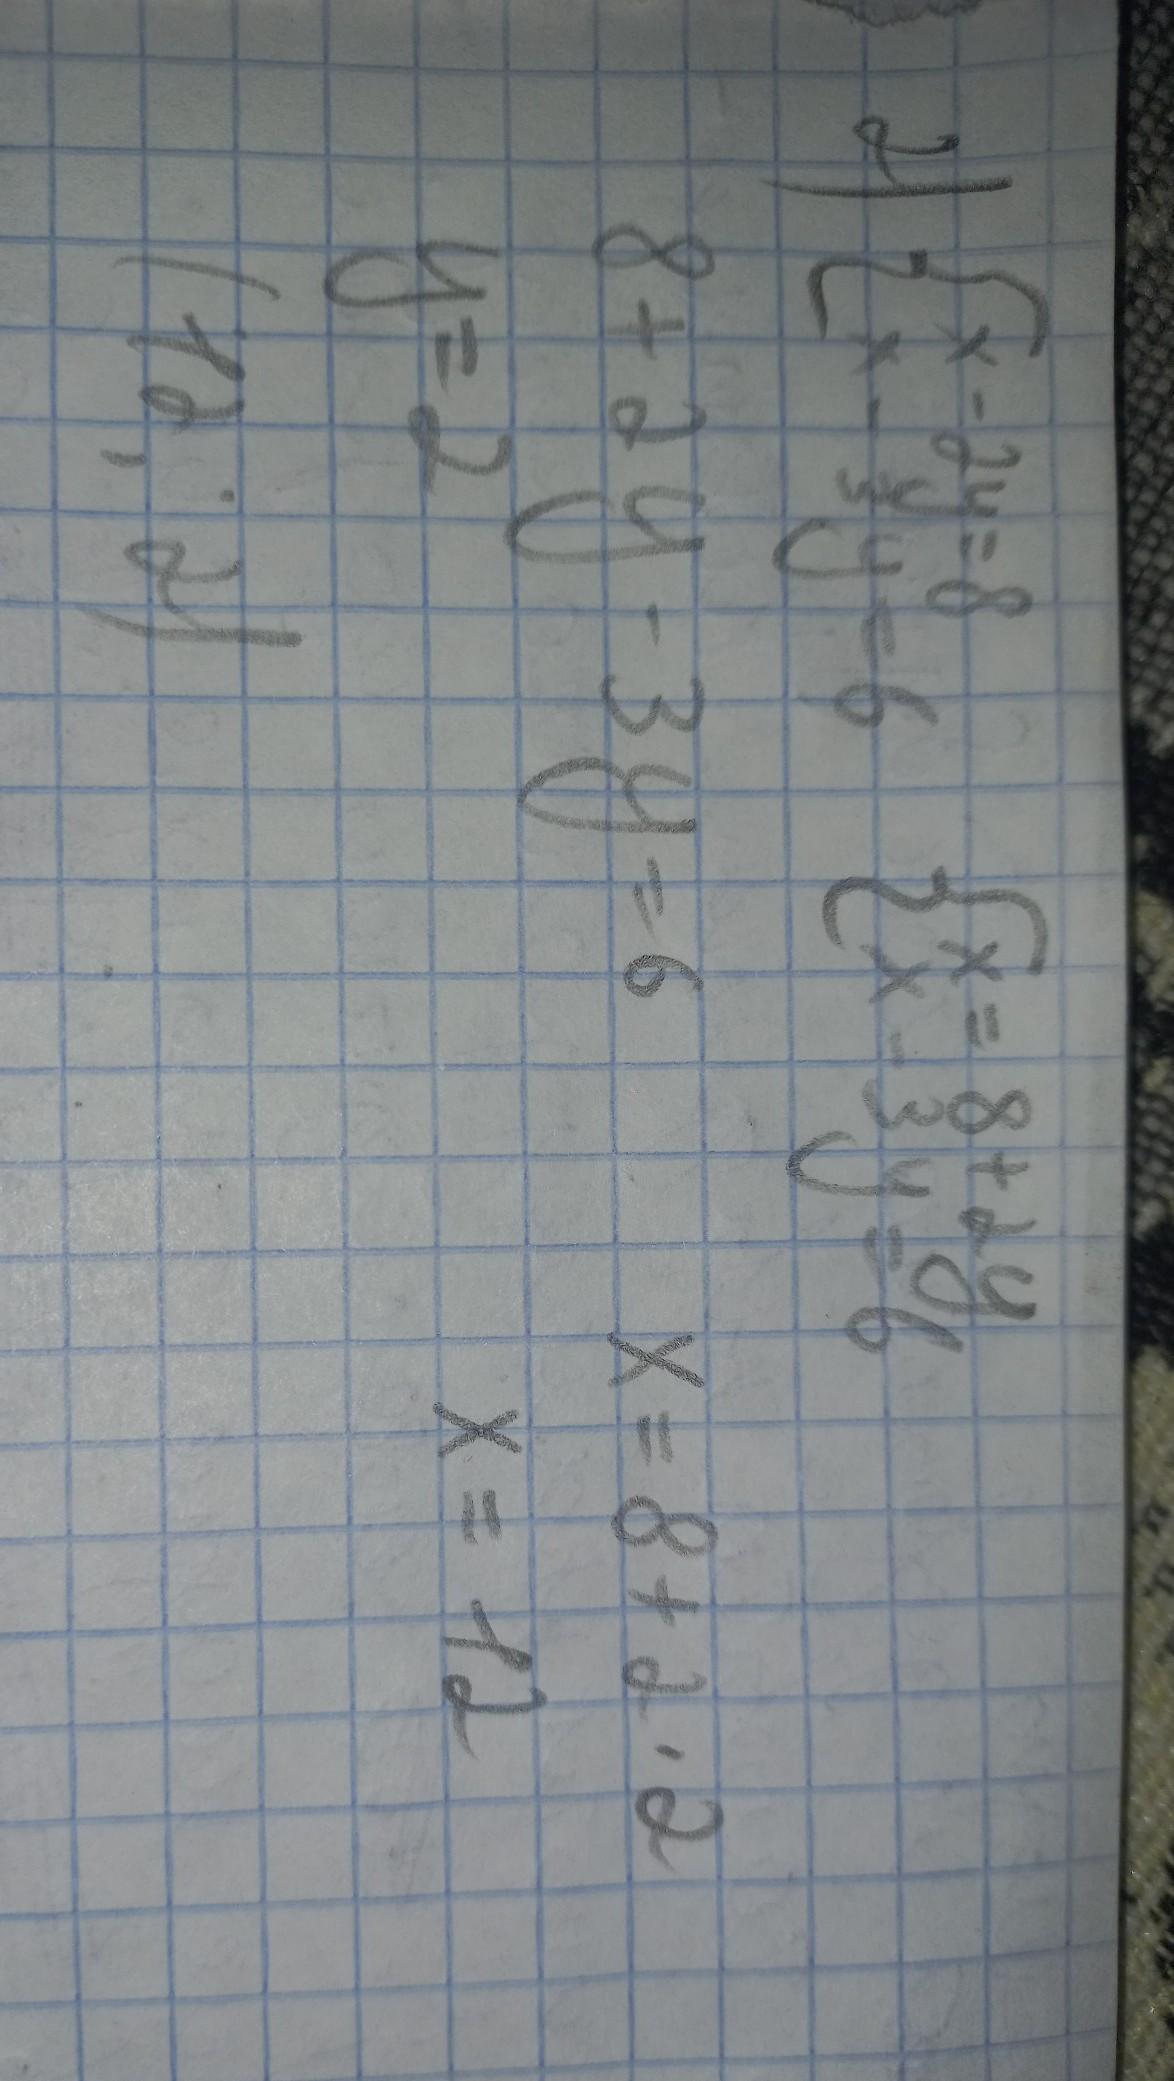 2) { x - 2y = 8 { x = 8 + 2y
{ x - 3y = 6 { x - 3y = 6
8 + 2y - 3y = 6 x = 8 + 2 · 2
y = 2 x = 12
( 12 ; 2 )